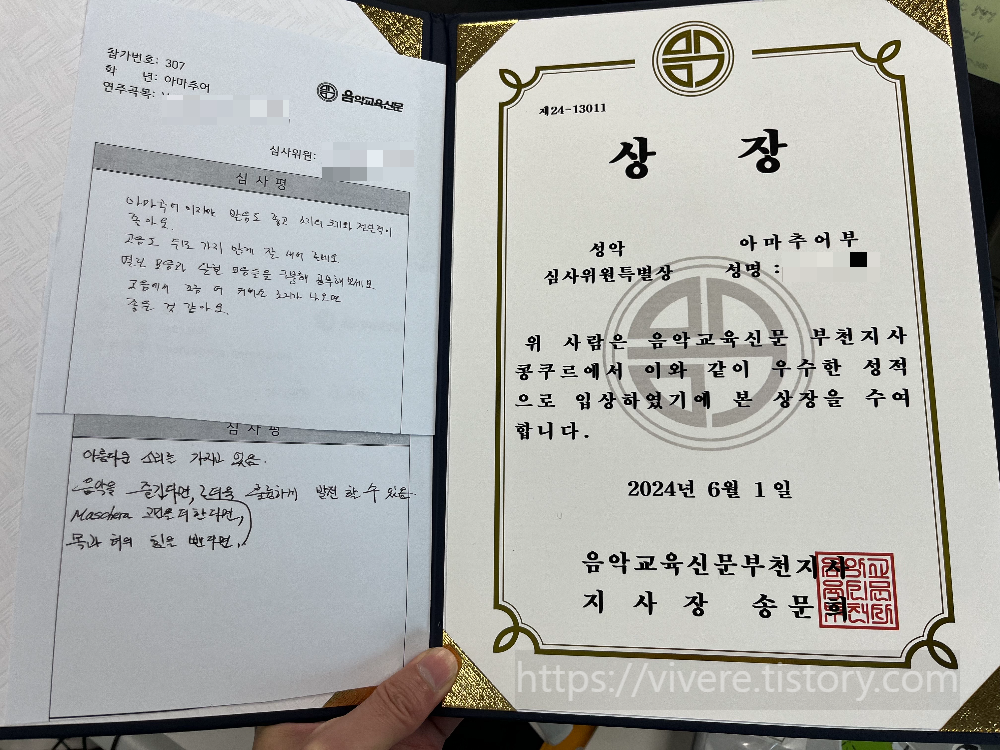 참가번호: 307
학 년: 아마추어
연주곡목:
음악교육신문
심사위원:
심 사 평
아마추어 이지만 발음도 좋고 소리의 크기와 전달력이
좋아요.
고음도 뒤로 가지 않게 잘 내어 주네요.
열린 모음과 닫힌 모음들을 구분해 공부해보세요.
고음에서 조금 더 커버된 소리가 나오면
좋을 것 같아요.
심 사 평
아름다운 소리를 가지고 있음.
음악을 즐긴다면, 더더욱 훌륭하게 발전 할 수 있음.
Maschera 고정을 더한다면,
목과 혀의 힘을 뺀다면,
제24-13011
상 장
성악 아마추어부
심사위원특별상 성명 :
위 사람은 음악교육신문 부천지사
콩쿠르에서 이와 같이 우수한 성적
으로 입상하였기에 본 상장을 수여
합니다.
2024년 6월 1일
음악교육신문부천지사
지 사 장 송문희
https://vivere.tistory.com